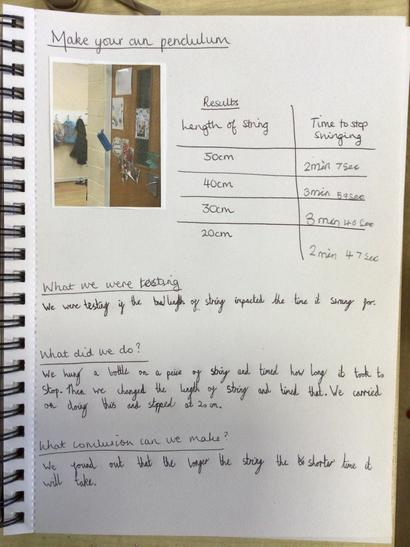 Make your own pendulum
Results
Length of string
Time to stop swinging
50cm
2min 7sec
40cm
3min 59sec
30cm
3 min 40 sec
20cm
2min 47sec
What we were testing
We were testing if the length of string impacted the time it swung for.
What did we do?
We hung a bottle on a peice of string and timed how long it took to
stop. Then we changed the length of string and timed that. We carried
on doing this and stopped at 20 cm.
What conclusion can we make?
We found out that the longer the string the shorter time it
will take.